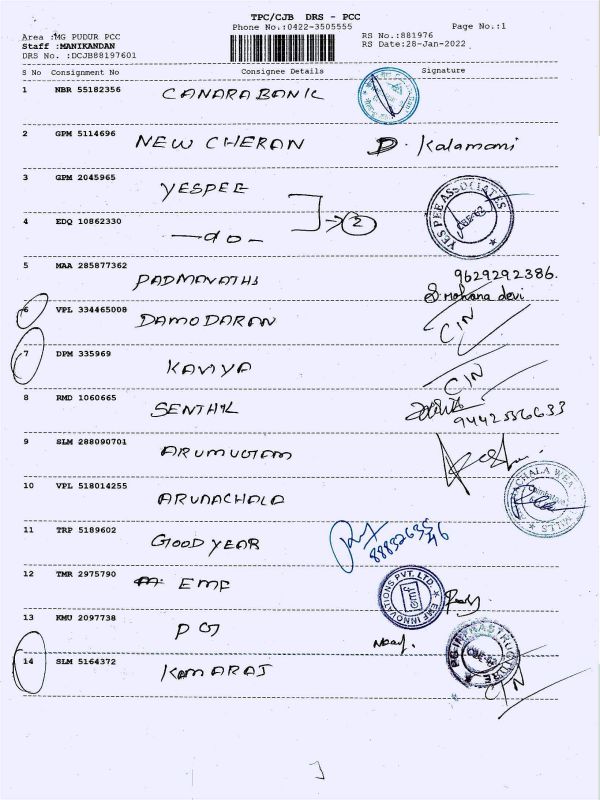 TPC/CJB DRS - PCC
Phone No.:0422-3505555
Page No.:1
Area :MG PUDUR PCC
RS No.:881976
Staff :MANIKANDAN
RS Date:28-Jan-2022
DRS No. :DCJB88197601
S No Consignment No Consignee Details Signature
1 NBR 55182356 CANARA BANK
2 GPM 5114696 NEW CHERAN D. Kalamani
3 GPM 2045965 YESPEE
YES PEE ASSOCIATES CBE-62
4 EDQ 10862330 -do- 2
5 MAA 285877362 PADMAVATHI 9629292386.
S. Mohana devi
6 VPL 334465008 DAMODARAN C/N
7 DPM 335969 KAVIYA C/N
8 RMD 1060665 SENTHIL
9 SLM 288090701 ARUMUGAM
10 VPL 518014255 ARUNACHALA
11 TRP 5189602 GOOD YEAR
12 TMR 2975790 EMF
EMF INNOVATIONS PVT. LTD. emf
13 KMU 2097738 PG
PG INFRASTRUCTURE
14 SLM 5164372 KAMARAJ C/N